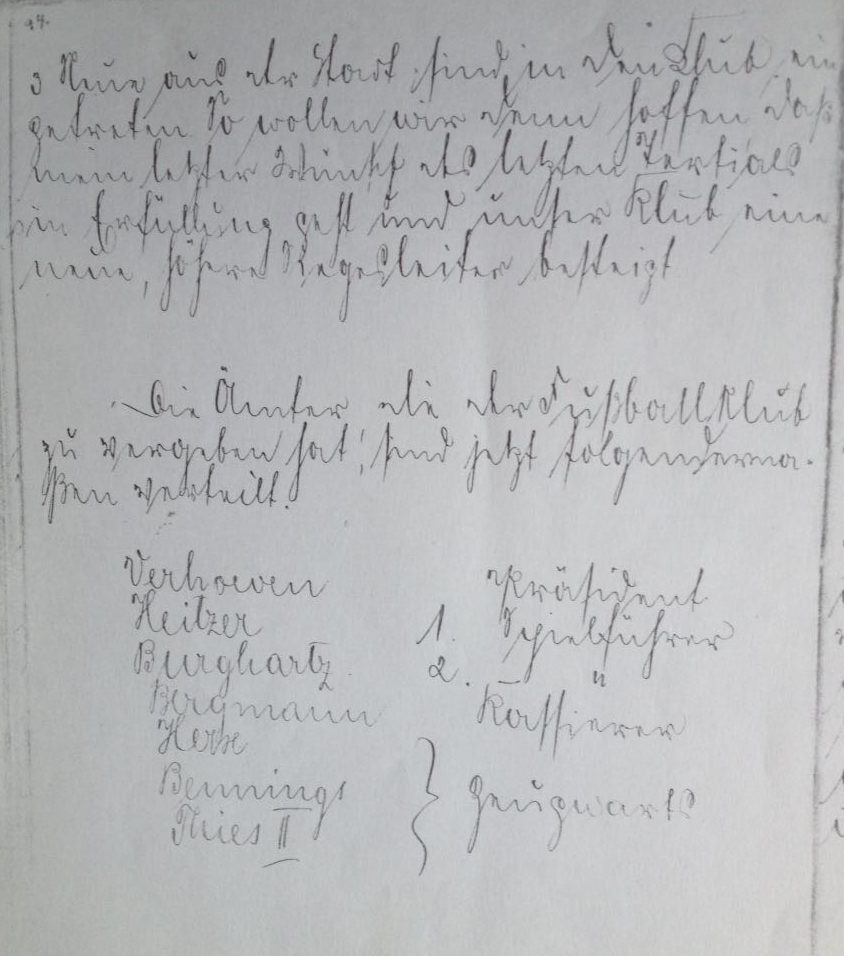 94.
3 Neue aus der Stadt sind in den Klub ein
getreten So wollen wir denn hoffen daß
mein letzter Wunsch des letzten Tertials
in Erfüllung geht und unser Klub eine
neue, höhere
besteigt
Die Ämter die der Fußballklub
zu vergeben hat, sind jetzt folgenderma-
ßen verteilt.
Verhoeven Präsident
Heitzer 1. Spielführer
Burghartz 2. – "
Bergmann Kassierer
Bennings } Zeugwarts
Thies II